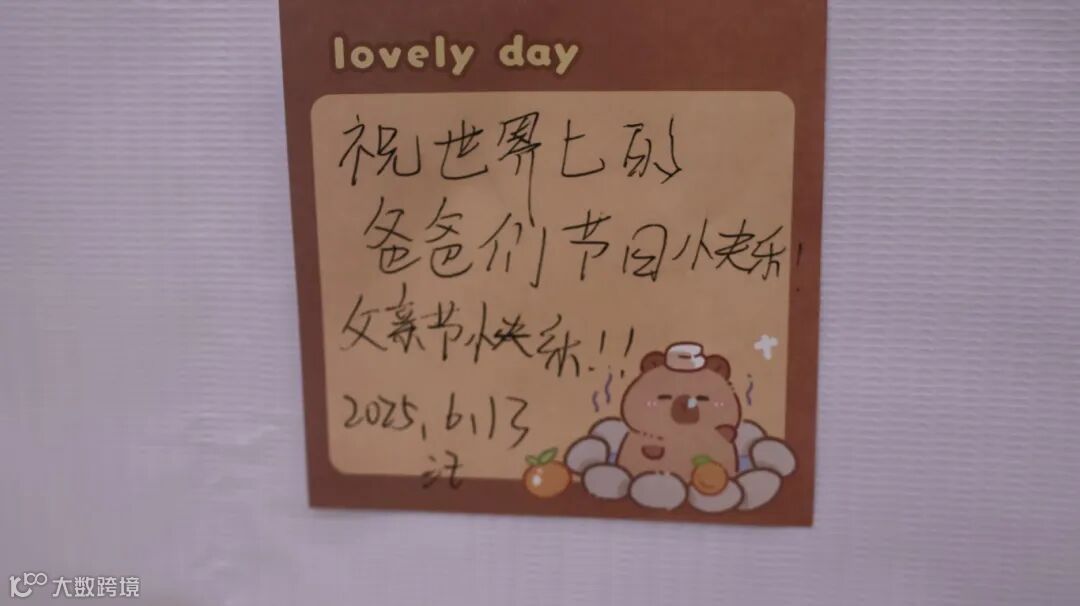 lovely day
祝世界上的
爸爸们节日快乐!
父亲节快乐!!!
2025.6.13
大数跨境